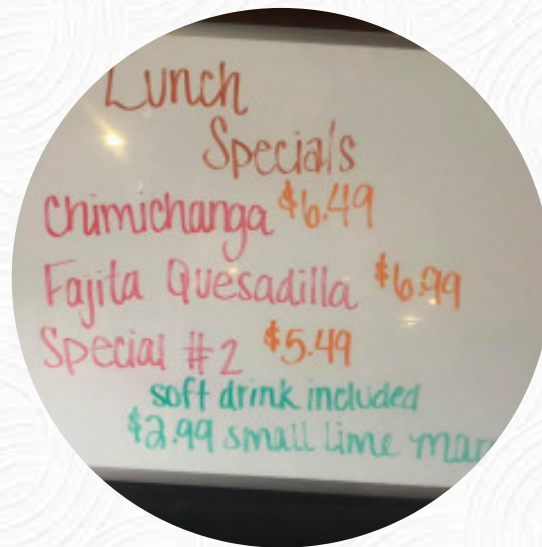 Lunch
Specials
Chimichanga $6.49
Fajita Quesadilla $6.99
Special #2 $5.49
soft drink included
$2.99 small lime